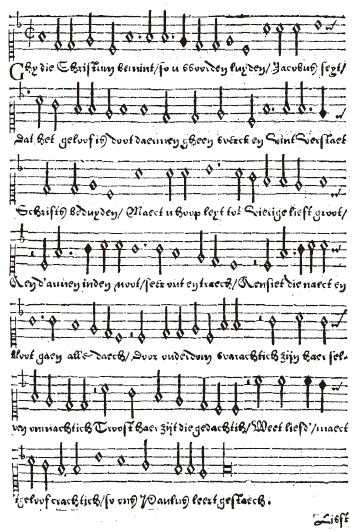 Ghy die Christum bemint/ so u woorden luyden/ Jacobus seyt/
dat het geloof is doot daermen gheen werck en vint Verstaet
Schrifts beduyden/ Maect u hoop leyt tot vierige liefd groot/
Aend'armen inden noot/ set uut en traech/ Aensiet die naect en
bloot gaen alle daech/ door ouderdom swarachtich zijn haer sel-
ven onmachtich Troost haer zijt die gedachtich/ Weet liefd'/ maect
'tgeloof crachtich/ so ons Paulus leert gestaech.
Liefd